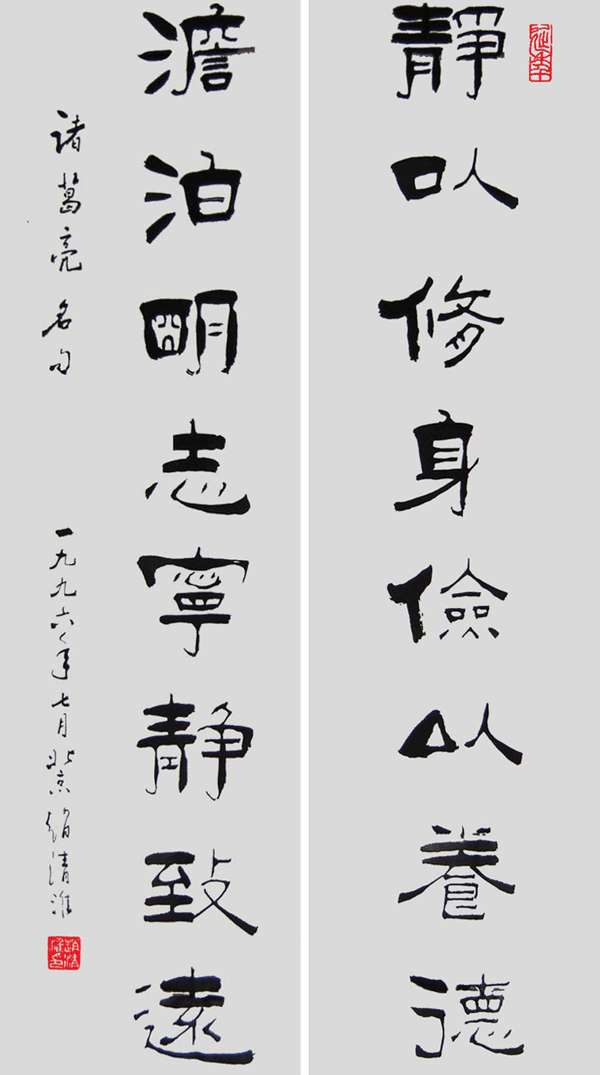 靜以修身儉以養德
澹泊明志寧静致遠
诸葛亮名句
一九九六年七月北京趙清淮